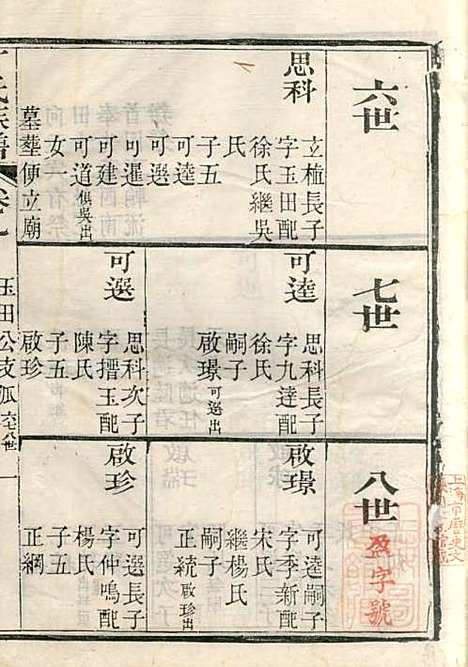 六世
思科
立植長子
字玉田配
徐氏繼吳
氏
子五
可逵
可選
可暹
可建
可道俱吳出
女一
墓塟便立廟
七世
可逵
思科長子
字九達配
徐氏
嗣子
啟璟可選出
可選
思科次子
字搢玉配
陳氏
子五
啟珍
八世
啟璟
可逵嗣子
字季新配
宋氏
繼楊氏
嗣子
正統啟珍出
啟珍
可選長子
字仲鳴配
楊氏
子五
正綱
氏族譜
卷七
玉田公支派
六七八世
一
盈字號